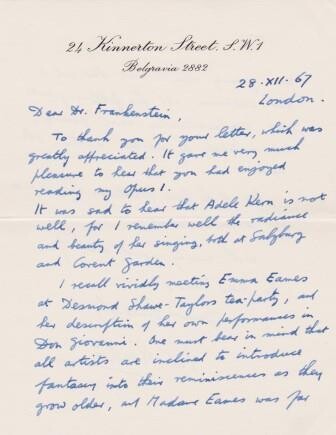 24 Kinnerton Street. S.W1
Belgravia 2882
28·XII·67
London.
Dear Dr. Frankenstein,
To thank you for your letter, which was
greatly appreciated. It gave me very much
pleasure to hear that you had enjoyed
reading my Opus I.
It was sad to hear that Adele Kern is not
well, for I remember well the radiance
and beauty of her singing, both at Salzburg
and Covent Garden.
I recall vividly meeting Emma Eames
at Desmond Shawe-Taylors tea-party, and
her description of her own performances in
Don Giovanni. One must bear in mind that
all artists are inclined to introduce
fantasy into their reminiscences as they
grow older, and Madame Eames was far